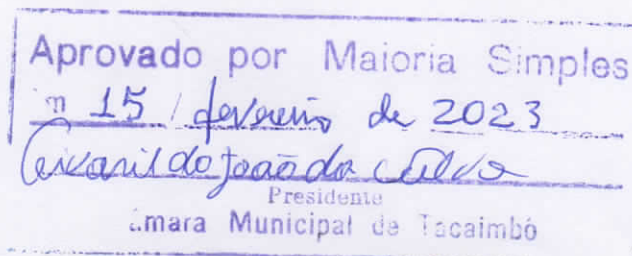 Aprovado por Maioria Simples
m 15 / fevereiro de 2023
João da Silva
Presidente
mara Municipal de Tacaimbó